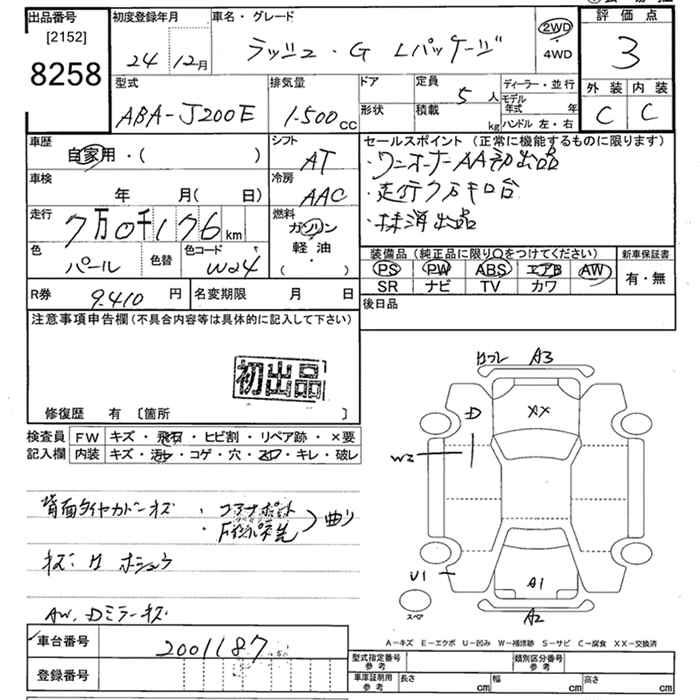 出品番号
[2152]
8258
初度登録年月
24 12月
車名・グレード
ラッシュ・G Lパッケージ
2WD
・
4WD
評価点
3
外装 内装
C C
型式
ABA-J200E
排気量
1.500cc
ドア
形状
定員
5人
積載
kg
ディーラー・並行
モデル年式 年
ハンドル 左・右
車歴
自家用・( )
シフト
AT
車検
年 月( 日)
冷房
AAC
走行
7万0千176km
燃料
ガソリン
軽・油
( )
色
パール
色替
色コード
W24
R券
9.410円
名変期限 月 日
セールスポイント(正常に機能するものに限ります)
・ワンオーナーAA初出品
・走行7万キロ台
・抹消出品
装備品(純正品に限り○をつけてください)
PS PW ABS エアB AW
SR ナビ TV カワ
新車保証書
有・無
後日品
注意事項申告欄(不具合内容等は具体的に記入して下さい)
初出品
修復歴 有 〔箇所 〕
検査員記入欄
FW キズ・飛石・ヒビ割・リペア跡・×要
内装 キズ・汚レ・コゲ・穴・スレ・キレ・破レ
背面タイヤカバーキズ
曲り
AW.Dミラーキズ
A3
D
XX
W2
U1
A1
A2
スペア
A-キズ E-エクボ U-凹み W-補修跡 S-サビ C-腐食 XX-交換済
車台番号
2001187
登録番号
型式指定番号参考
類別区分番号参考
車庫証明用参考
長さ cm
幅 cm
高さ cm